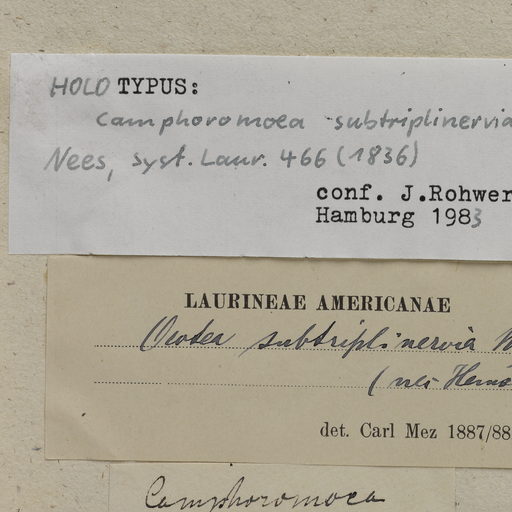 HOLO TYPUS:
Camphoromoea subtriplinervia
Nees, Syst. Laur. 466 (1836)
conf. J.Rohwer
Hamburg 1983
LAURINEAE AMERICANAE
Ocotea subtriplinervia
det. Carl Mez 1887/88
Camphoromoea